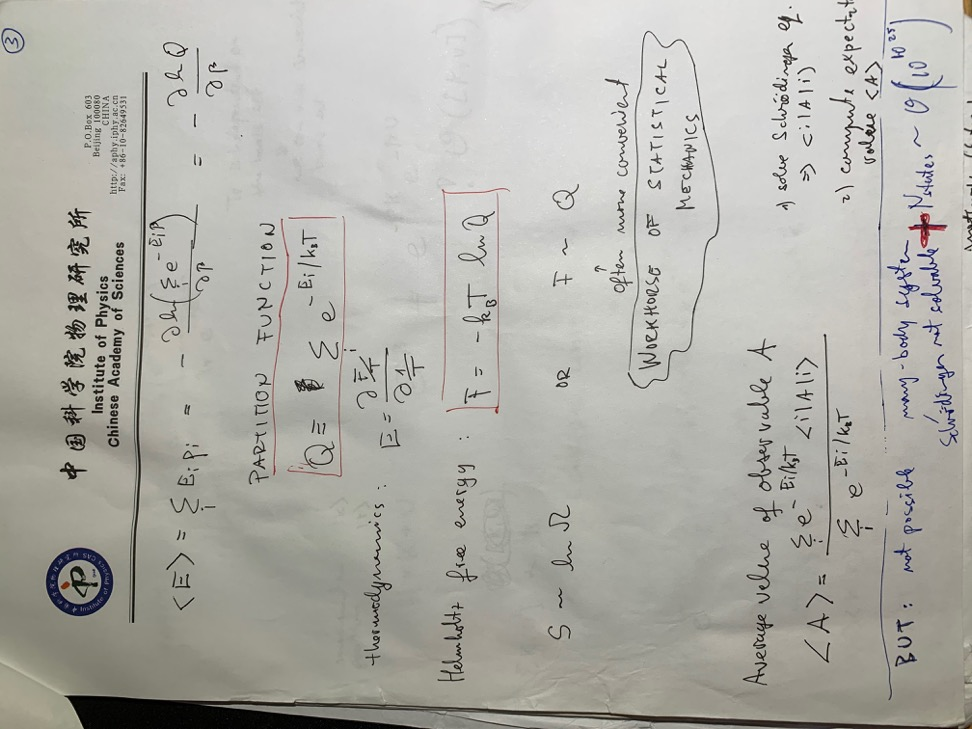 ③
中国科学院物理研究所
Institute of Physics
Chinese Academy of Sciences
P.O.Box 603
Beijing 100080
CHINA
http://aphy.iphy.ac.cn
Fax: +86-10-82649531
<E> = Σ_i E_i p_i = - ∂ln(Σ_i e^{-E_i β})/∂β = - ∂lnQ/∂β
PARTITION FUNCTION
Q ≡ Σ_i e^{-E_i/k_BT}
thermodynamics: E = ∂(F/T)/∂(1/T)
Helmholtz free energy: F = -k_BT lnQ
S ~ ln Ω OR F ~ Q
↑
often more convenient
WORKHORSE OF STATISTICAL
MECHANICS
Average value of observable A
<A> = Σ_i e^{-E_i/k_BT} <i|A|i> / Σ_i e^{-E_i/k_BT}
1) solve Schrödinger eq.
⇒ <i|A|i>
2) compute expectat
value <A>
BUT: not possible many-body system
Schrödinger not solvable + Nstates ~ O(10^{10^{25}})